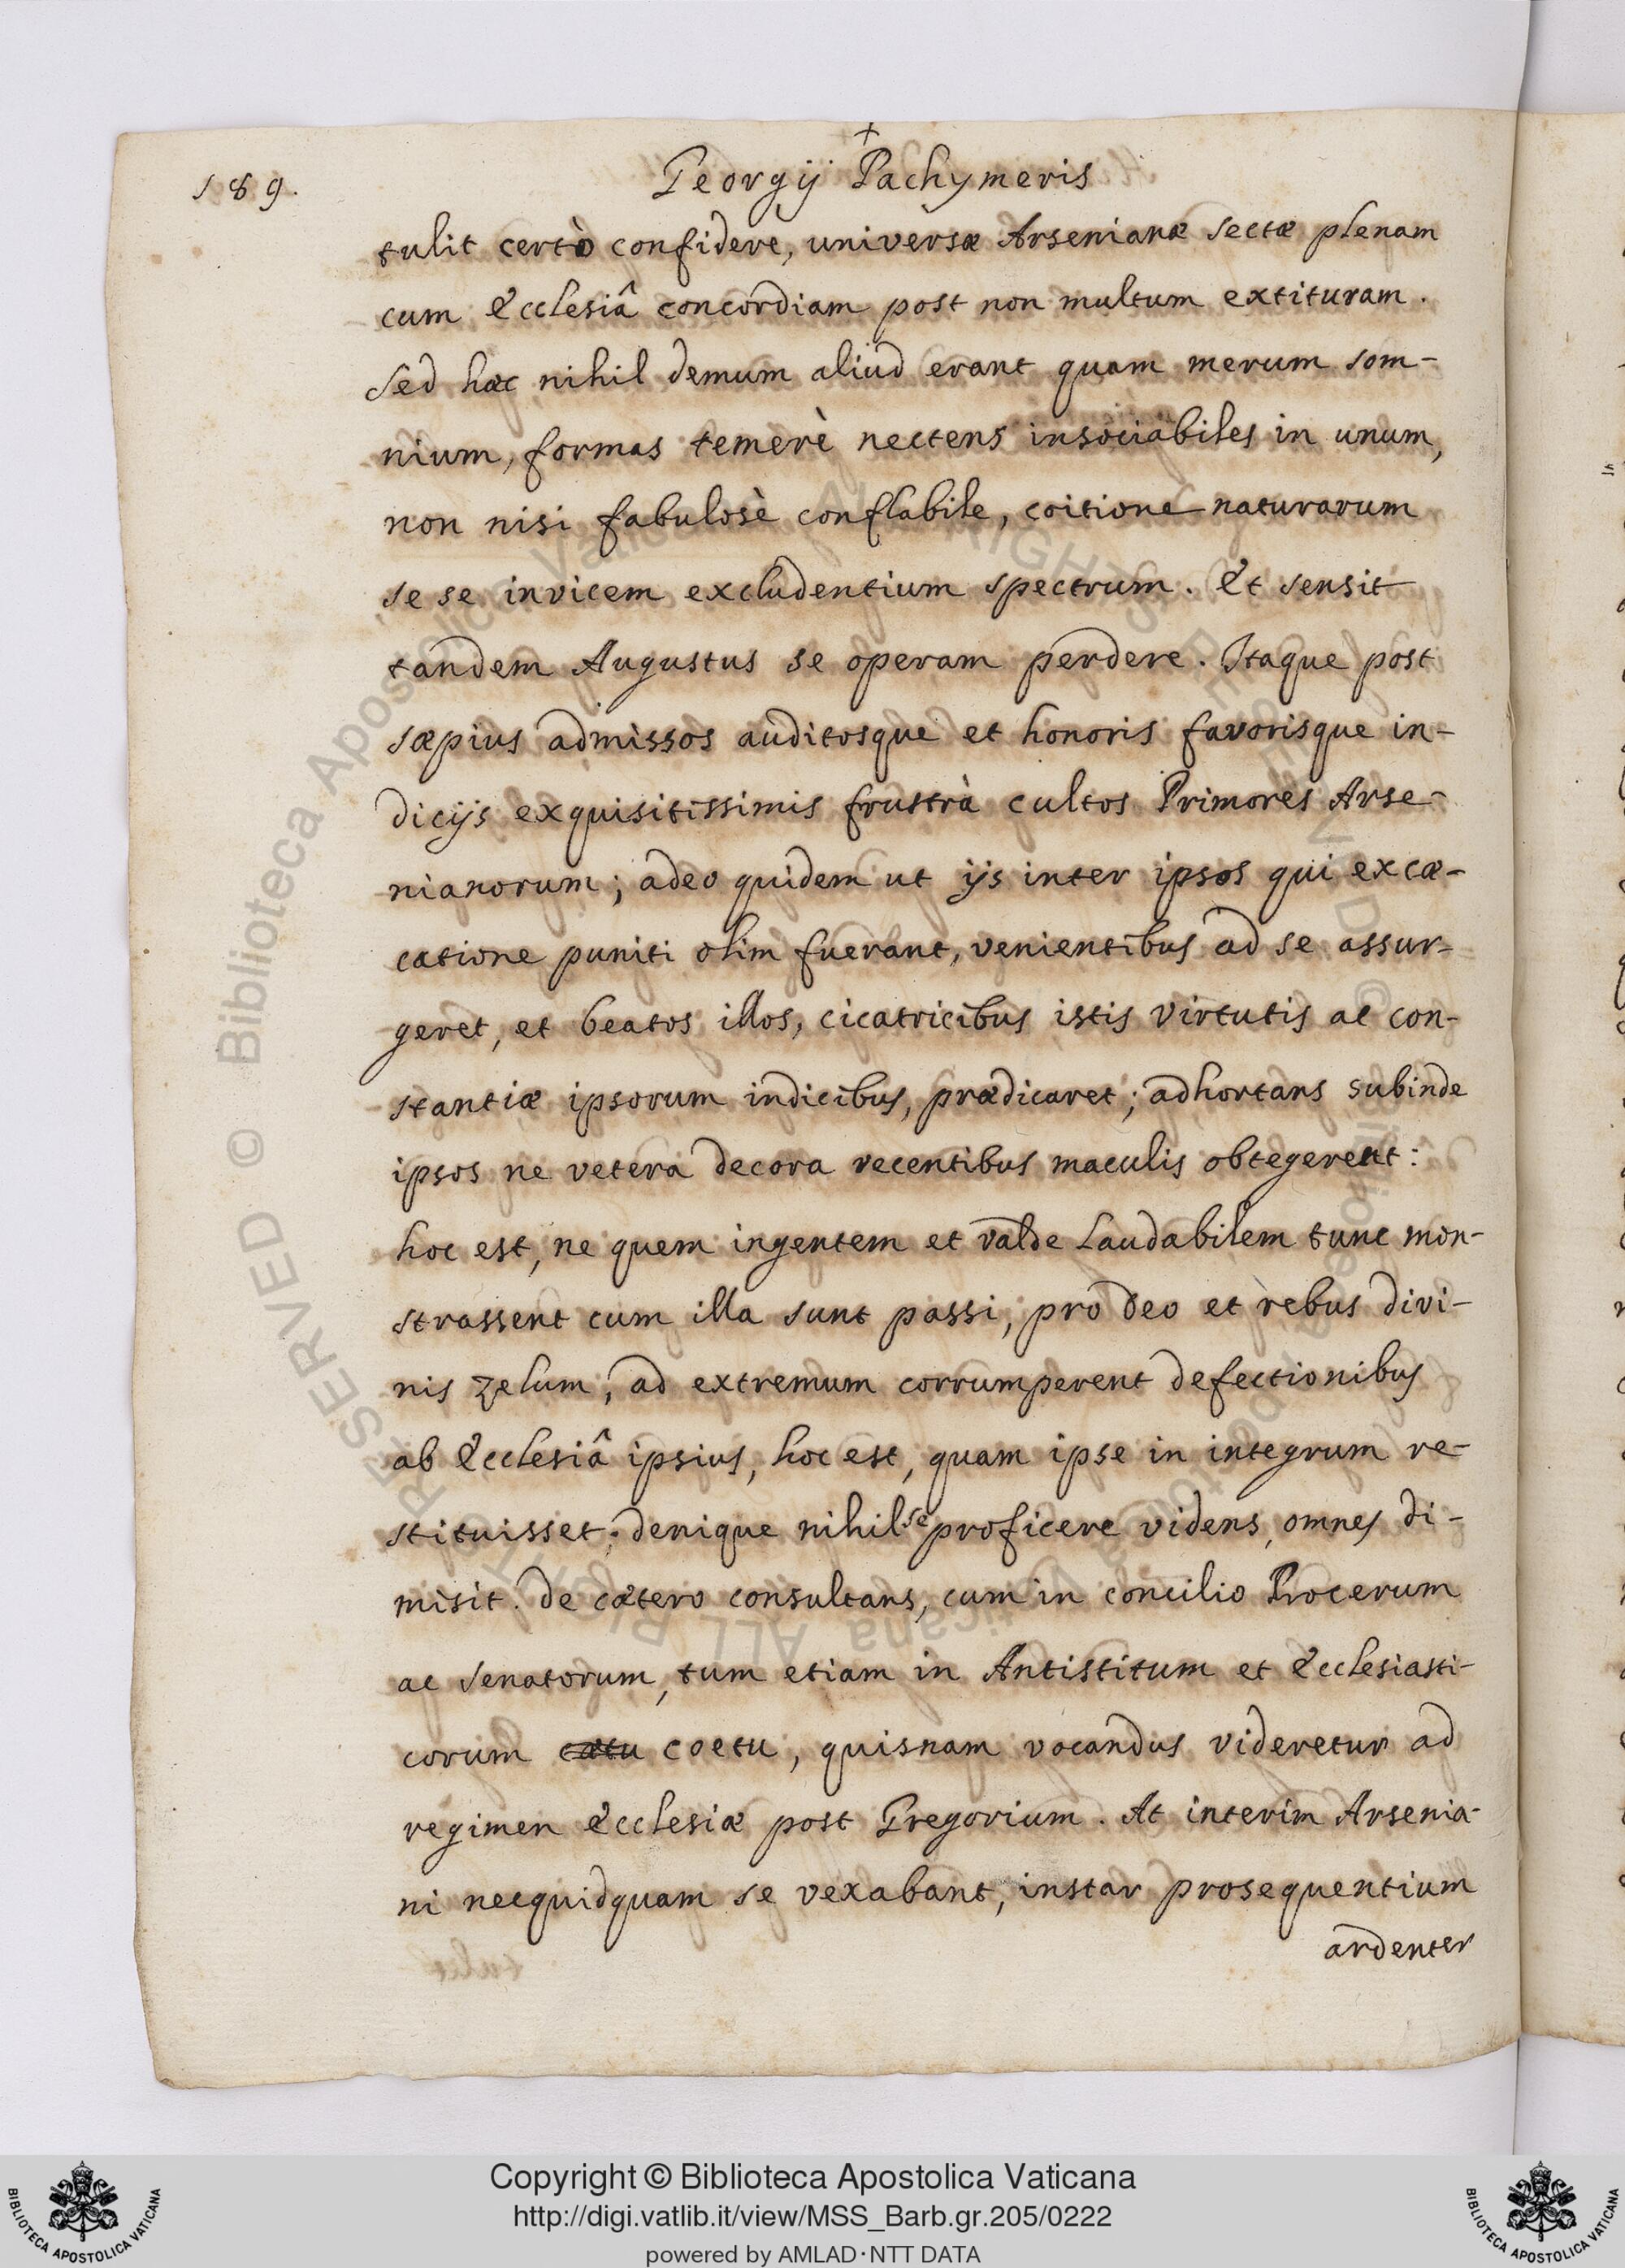 +
189.
Georgij Pachymeris
tulit certò confidere, universæ Arsenianæ sectæ plenam
cum Ecclesiâ concordiam post non multum extituram.
Sed hæc nihil demum aliud erant quam merum som-
nium, formas temerè nectens insociabiles in unum,
non nisi fabulosè conflabile, coitione naturarum
se se invicem excludentium spectrum. Et sensit
tandem Augustus se operam perdere. Itaque post
sæpius admissos auditosque et honoris favorisque in-
dicijs exquisitissimis frustrà cultos Primores Arse-
nianorum; adeo quidem ut ijs inter ipsos qui excæ-
catione puniti olim fuerant, venientibus ad se assur-
geret, et beatos illos, cicatricibus istis virtutis ac con-
stantiæ ipsorum indicibus, prædicaret; adhortans subinde
ipsos ne vetera decora recentibus maculis obtegerent:
hoc est, ne quem ingentem et valde laudabilem tunc mon-
strassent cum illa sunt passi, pro Deo et rebus divi-
nis zelum, ad extremum corrumperent defectionibus
ab Ecclesiâ ipsius, hoc est, quam ipse in integrum re-
stituisset; denique nihil se proficere videns, omnes di-
misit. De cætero consultans, cum in concilio Procerum
ac Senatorum, tum etiam in Antistitum et Ecclesiasti-
corum cætu coetu, quisnam vocandus videretur ad
regimen Ecclesiæ post Gregorium. At interim Arsenia-
ni necquidquam se vexabant, instar prosequentium
ardenter
© Biblioteca Apostolica Vaticana ALL RIGHTS RESERVED
Copyright © Biblioteca Apostolica Vaticana
http://digi.vatlib.it/view/MSS_Barb.gr.205/0222
powered by AMLAD·NTT DATA
BIBLIOTECA APOSTOLICA VATICANA
BIBLIOTECA APOSTOLICA VATICANA